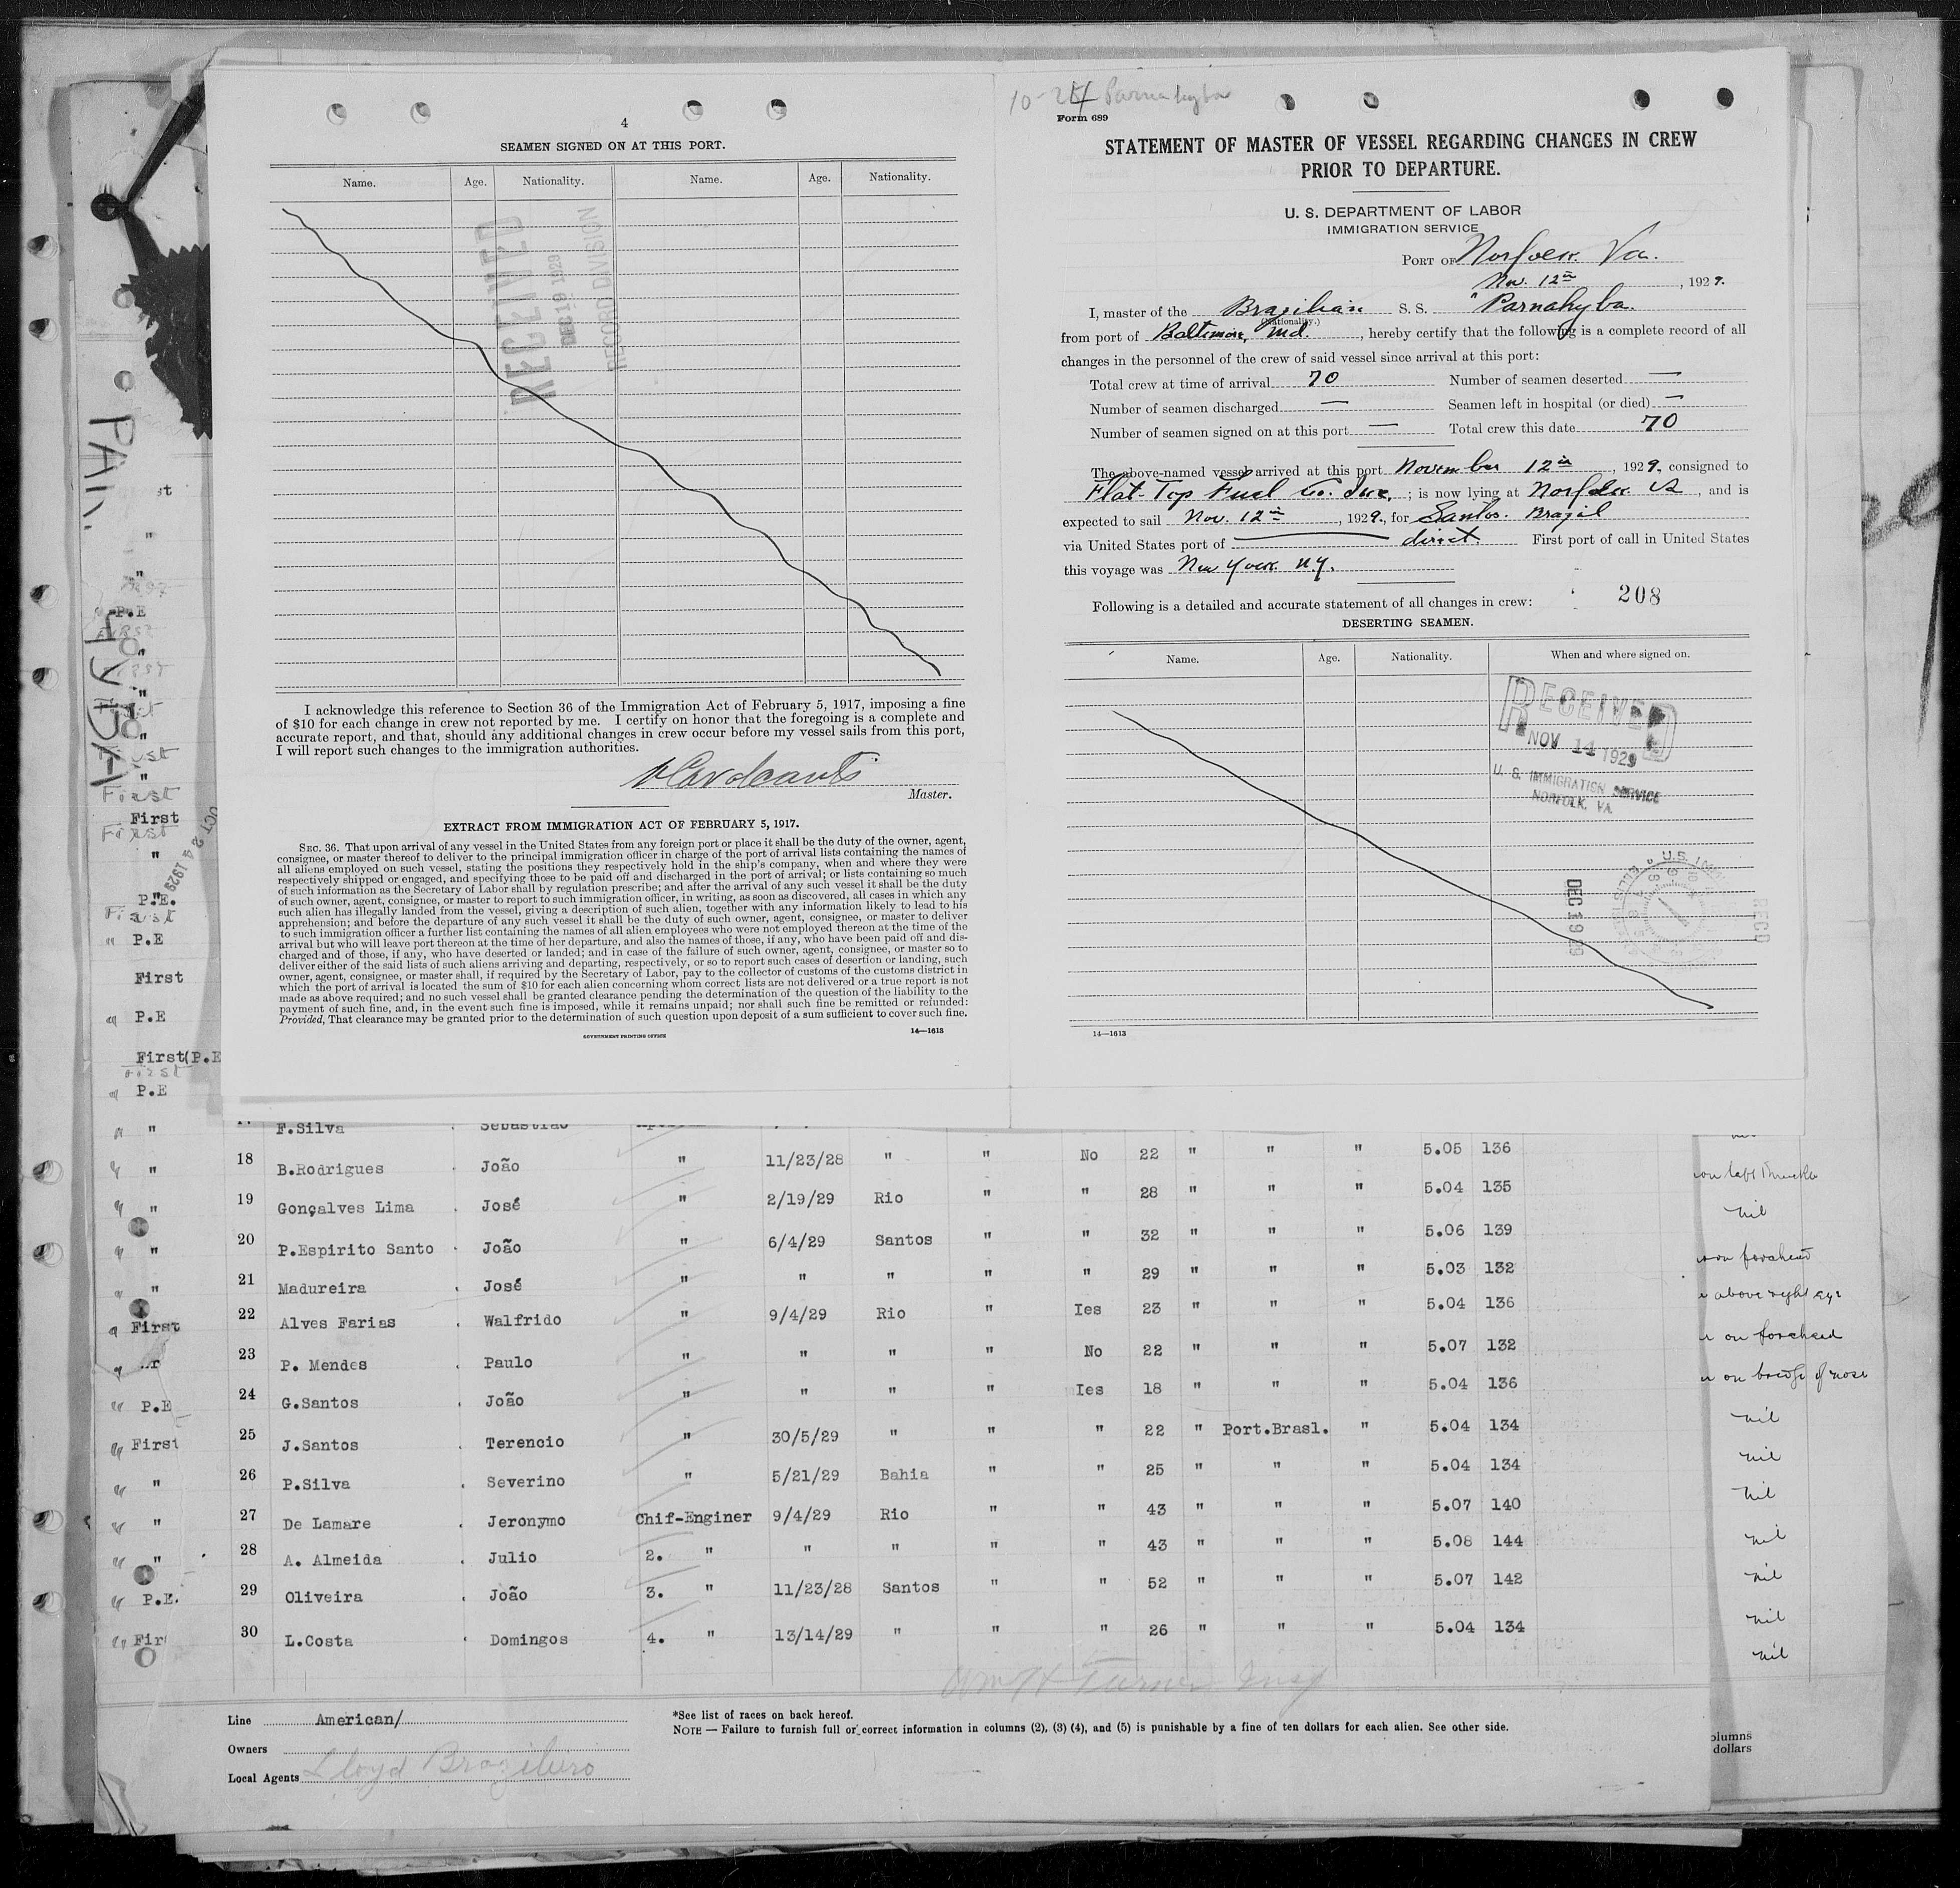 4
SEAMEN SIGNED ON AT THIS PORT.
Name. Age. Nationality. Name. Age. Nationality.
RECEIVED
DEC 19 1929
RECORD DIVISION
I acknowledge this reference to Section 36 of the Immigration Act of February 5, 1917, imposing a fine
of $10 for each change in crew not reported by me. I certify on honor that the foregoing is a complete and
accurate report, and that, should any additional changes in crew occur before my vessel sails from this port,
I will report such changes to the immigration authorities.
Master.
EXTRACT FROM IMMIGRATION ACT OF FEBRUARY 5, 1917.
SEC. 36. That upon arrival of any vessel in the United States from any foreign port or place it shall be the duty of the owner, agent,
consignee, or master thereof to deliver to the principal immigration officer in charge of the port of arrival lists containing the names of
all aliens employed on such vessel, stating the positions they respectively hold in the ship's company, when and where they were
respectively shipped or engaged, and specifying those to be paid off and discharged in the port of arrival; or lists containing so much
of such information as the Secretary of Labor shall by regulation prescribe; and after the arrival of any such vessel it shall be the duty
of such owner, agent, consignee, or master to report to such immigration officer, in writing, as soon as discovered, all cases in which any
such alien has illegally landed from the vessel, giving a description of such alien, together with any information likely to lead to his
apprehension; and before the departure of any such vessel it shall be the duty of such owner, agent, consignee, or master to deliver
to such immigration officer a further list containing the names of all alien employees who were not employed thereon at the time of the
arrival but who will leave port thereon at the time of her departure, and also the names of those, if any, who have been paid off and dis-
charged and of those, if any, who have deserted or landed; and in case of the failure of such owner, agent, consignee, or master so to
deliver either of the said lists of such aliens arriving and departing, respectively, or so to report such cases of desertion or landing, such
owner, agent, consignee, or master shall, if required by the Secretary of Labor, pay to the collector of customs of the customs district in
which the port of arrival is located the sum of $10 for each alien concerning whom correct lists are not delivered or a true report is not
made as above required; and no such vessel shall be granted clearance pending the determination of the question of the liability to the
payment of such fine, and, in the event such fine is imposed, while it remains unpaid; nor shall such fine be remitted or refunded:
Provided, That clearance may be granted prior to the determination of such question upon deposit of a sum sufficient to cover such fine.
GOVERNMENT PRINTING OFFICE 14—1613
Parnahyba
Form 689
STATEMENT OF MASTER OF VESSEL REGARDING CHANGES IN CREW
PRIOR TO DEPARTURE.
U. S. DEPARTMENT OF LABOR
IMMIGRATION SERVICE
PORT OF Norfolk Va.
Nov. 12th, 1929.
I, master of the Brazilian S. S. "Parnahyba
(Nationality.)
from port of Baltimore, Md., hereby certify that the following is a complete record of all
changes in the personnel of the crew of said vessel since arrival at this port:
Total crew at time of arrival 70 Number of seamen deserted —
Number of seamen discharged — Seamen left in hospital (or died) —
Number of seamen signed on at this port — Total crew this date 70
The above-named vessel arrived at this port November 12th, 1929, consigned to
Flat-Top Fuel Co. Inc.; is now lying at Norfolk Va, and is
expected to sail Nov. 12th, 1929., for Santos. Brazil
via United States port of — direct. First port of call in United States
this voyage was New York. N.Y.
208
Following is a detailed and accurate statement of all changes in crew:
DESERTING SEAMEN.
Name. Age. Nationality. When and where signed on.
RECEIVED
NOV 14 1929
U. S. IMMIGRATION SERVICE
NORFOLK, VA
DEC 19 29
REC'D
14—1613
F.Silva Sebastião
18 B.Rodrigues João " 11/23/28 " " No 22 " " " 5.05 136
19 Gonçalves Lima José " 2/19/29 Rio " " 28 " " " 5.04 135 nil
20 P.Espirito Santo João " 6/4/29 Santos " " 32 " " " 5.06 139 forehead
21 Madureira José " " " " " 29 " " " 5.03 132 above right eye
22 Alves Farias Walfrido " 9/4/29 Rio " Ies 23 " " " 5.04 136 on forehead
23 P. Mendes Paulo " " " " No 22 " " " 5.07 132 on bridge of nose
24 G.Santos João " " " " Ies 18 " " " 5.04 136 nil
25 J.Santos Terencio " 30/5/29 " " " 22 " Port.Brasl. " 5.04 134 nil
26 P.Silva Severino " 5/21/29 Bahia " " 25 " " " 5.04 134 nil
27 De Lamare Jeronymo Chif-Enginer 9/4/29 Rio " " 43 " " " 5.07 140 nil
28 A. Almeida Julio 2. " " " " " 43 " " " 5.08 144 nil
29 Oliveira João 3. " 11/23/28 Santos " " 52 " " " 5.07 142 nil
30 L.Costa Domingos 4. " 13/14/29 " " " 26 " " " 5.04 134 nil
Wm H Turner Insp
Line American/
Owners
Local Agents Lloyd Braziliero
*See list of races on back hereof.
NOTE — Failure to furnish full or correct information in columns (2), (3) (4), and (5) is punishable by a fine of ten dollars for each alien. See other side.
olumns
dollars
P.E
First
First
First
P.E.
First
" P.E
First
P.E
First(P.E
P.E
First
P.E
First
P.E.
OCT 24 1929